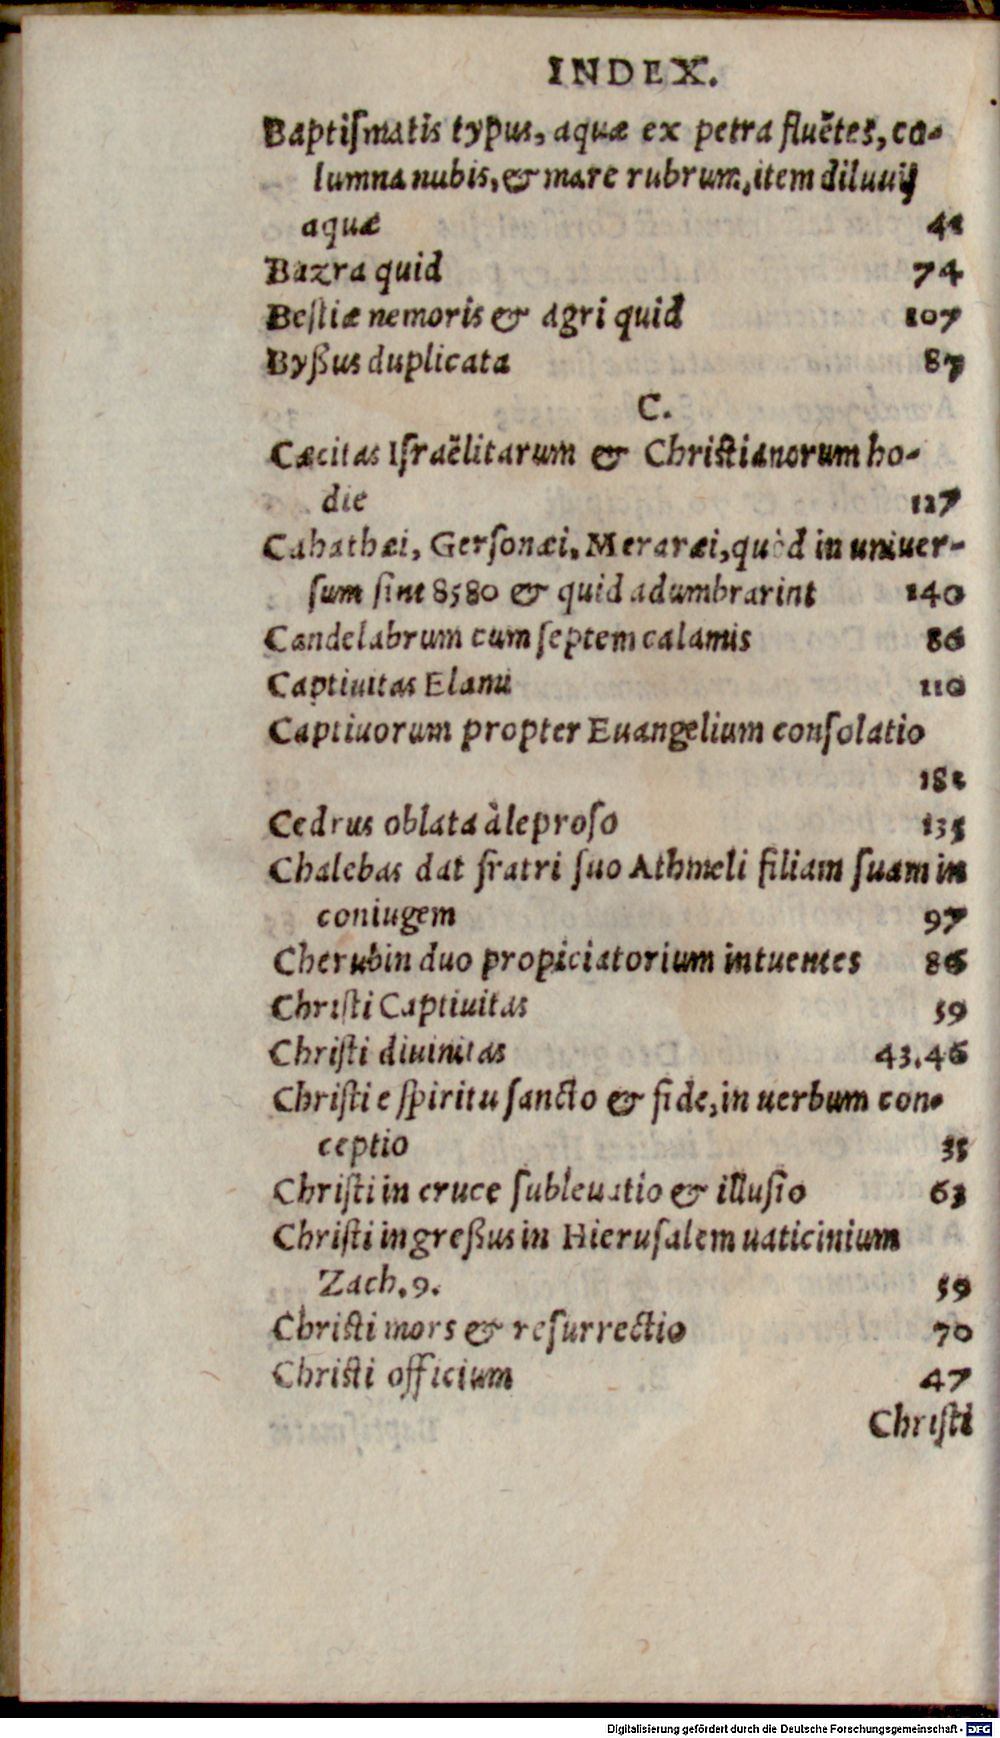 INDEX.
Baptiſmatis typus, aquæ ex petra fluẽtes, co-
lumna nubis, & mare rubrum, item diluuij
aquæ 41
Bazra quid 74
Beſtiæ nemoris & agri quid 107
Byßus duplicata 87
C.
Cæcitas Iſraëlitarum & Chriſtianorum ho-
die 127
Cahathæi, Gerſonæi, Meraræi, quòd in uniuer-
ſum ſint 8580 & quid adumbrarint 140
Candelabrum cum ſeptem calamis 86
Captiuitas Elami 110
Captiuorum propter Euangelium conſolatio
181
Cedrus oblata à leproſo 135
Chalebas dat fratri ſuo Athmeli filiam ſuam in
coniugem 97
Cherubin duo propiciatorium intuentes 86
Chriſti Captiuitas 59
Chriſti diuinitas 43.46
Chriſti e ſpiritu ſancto & fide, in uerbum con-
ceptio 35
Chriſti in cruce ſubleuatio & illuſio 63
Chriſti ingreßus in Hieruſalem uaticinium
Zach. 9. 59
Chriſti mors & reſurrectio 70
Chriſti officium 47
Chriſti
Digitalisierung gefördert durch die Deutsche Forschungsgemeinschaft - DFG